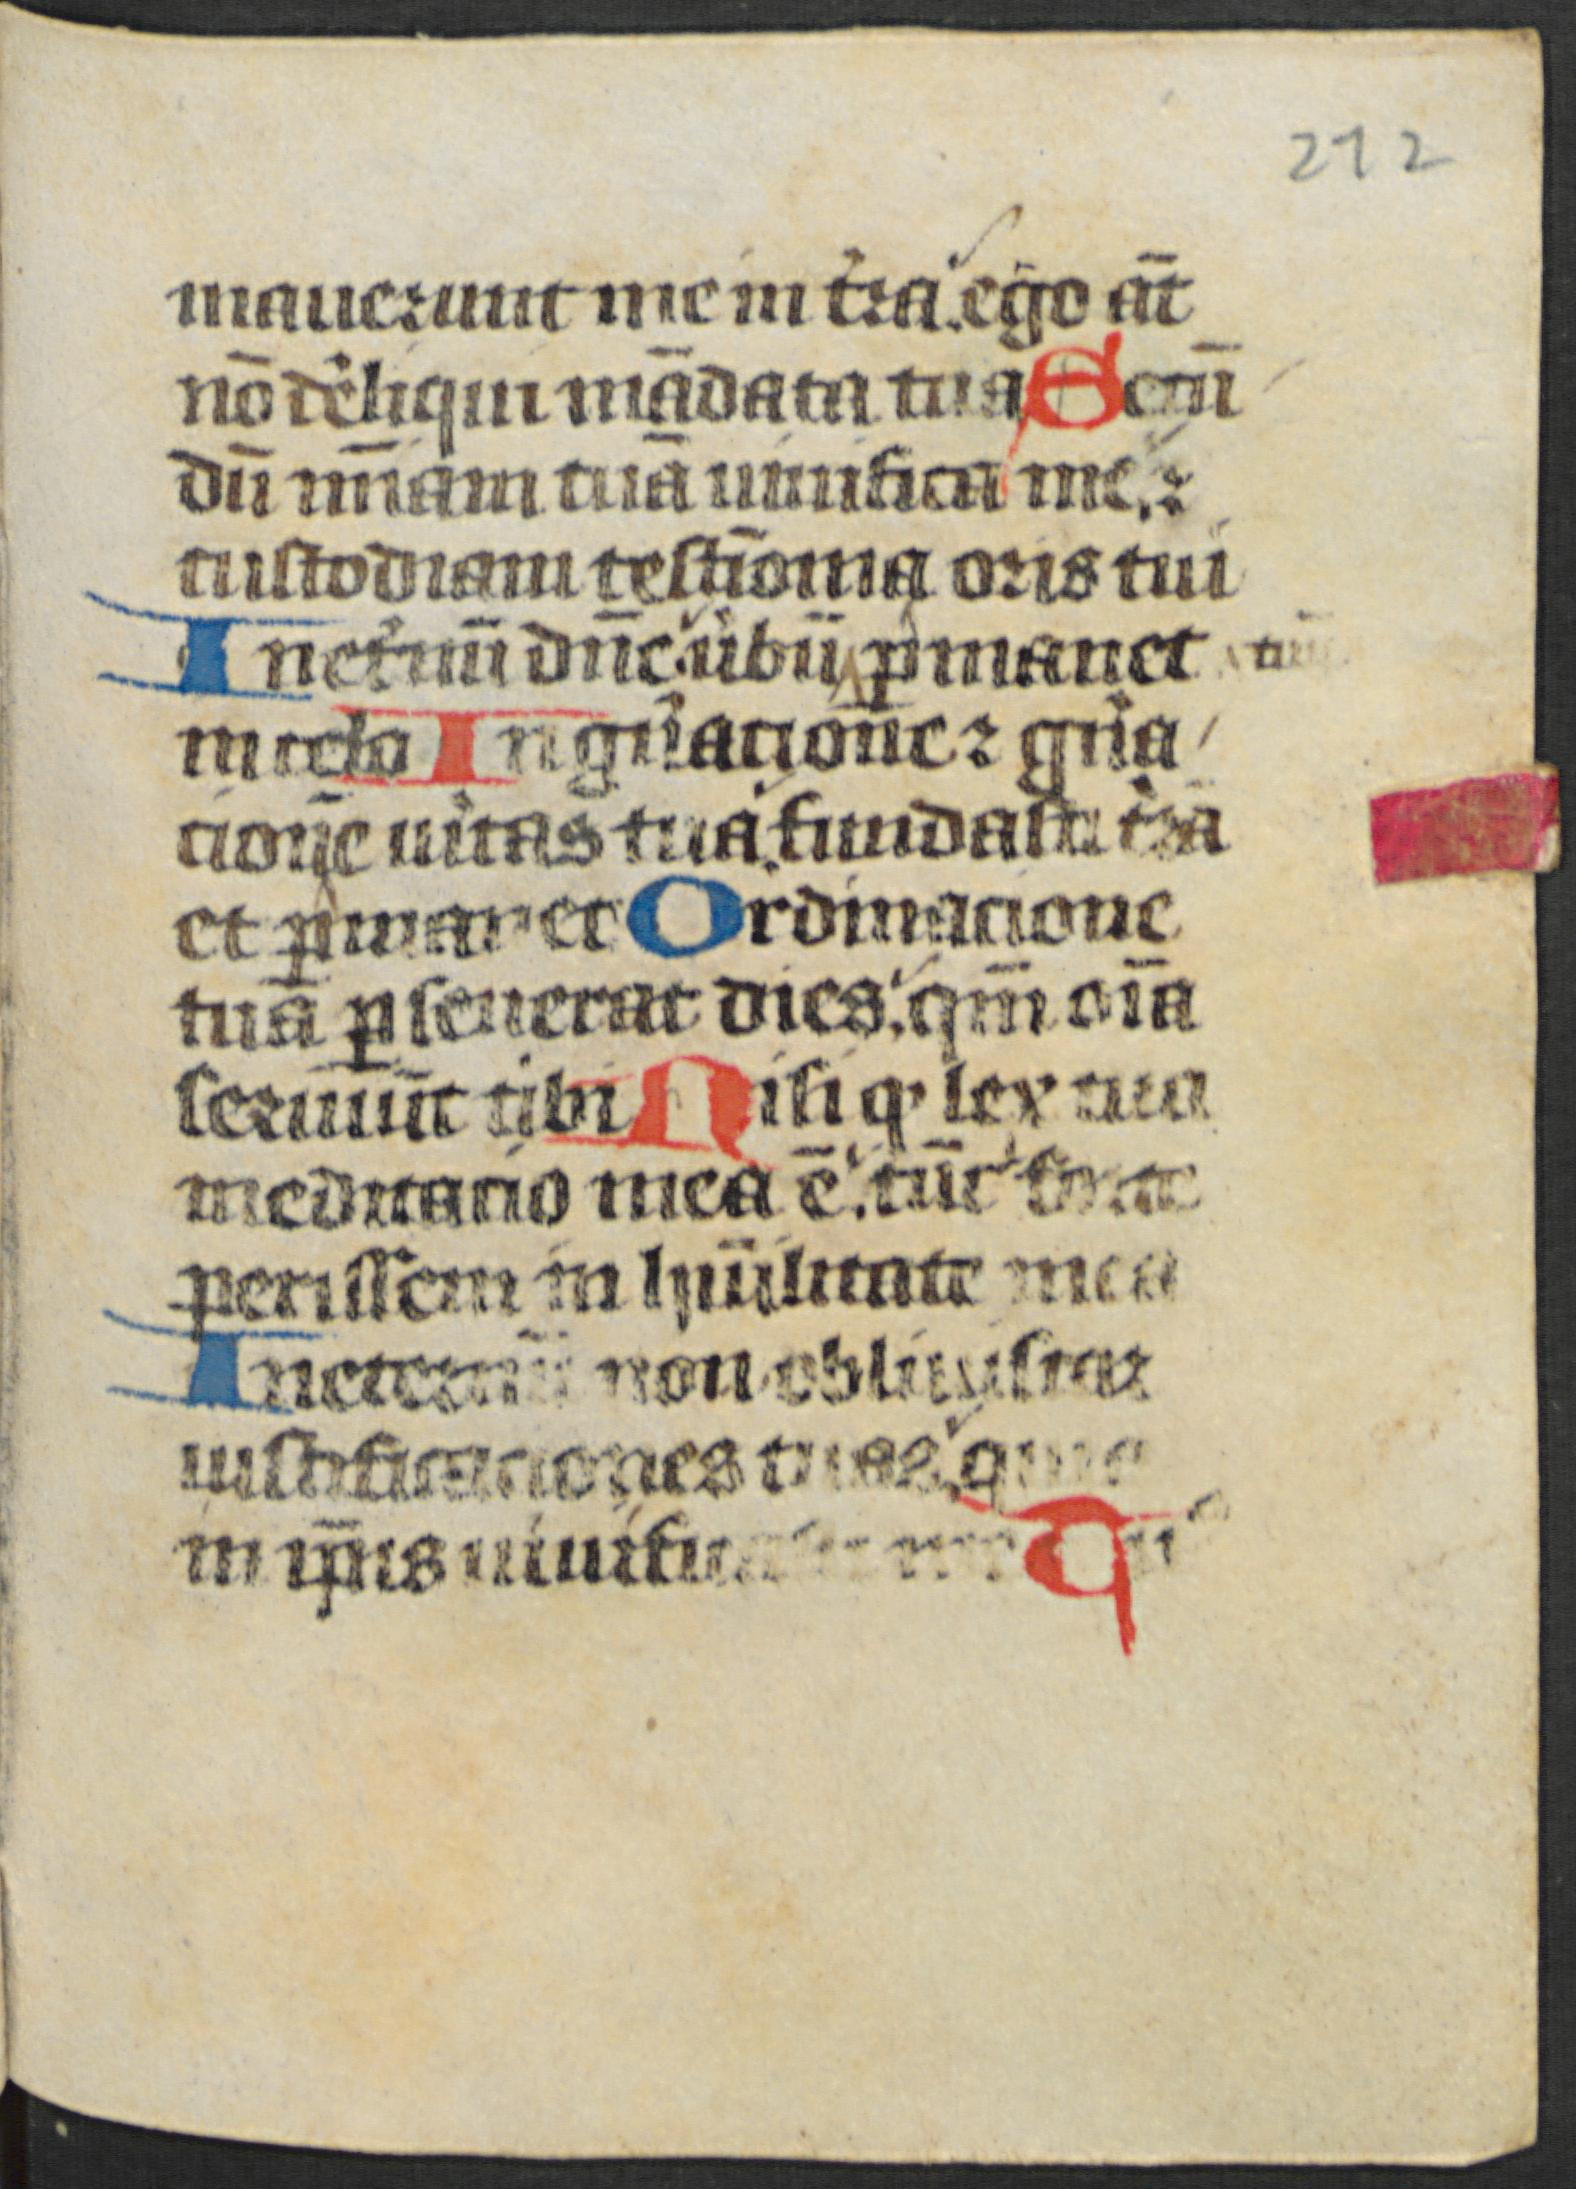 212
mauerunt me in t̾ra. ego aūt
nō dereliqui mādata tua Secū
dū mīam tuā uiuifica me. ⁊
custodiam testīonia oris tui
In et̾nū dn̄e. ūbū ꝑmanet tuū
in celo In gn̾acione ⁊ gn̾a
cione uitas tua. fundasti t̾rā
et ꝑmanet Ordinacione
tuā ꝑseuerat dies. qm̄ oīa
seruiūt tibi Nisi qꝫ lex tua
meditacio mea ē. tūc forte
perissem in hūilitate mea
In eternū non obliuiscar
iustificaciones tuas. quia
in ip̄is uiuifi